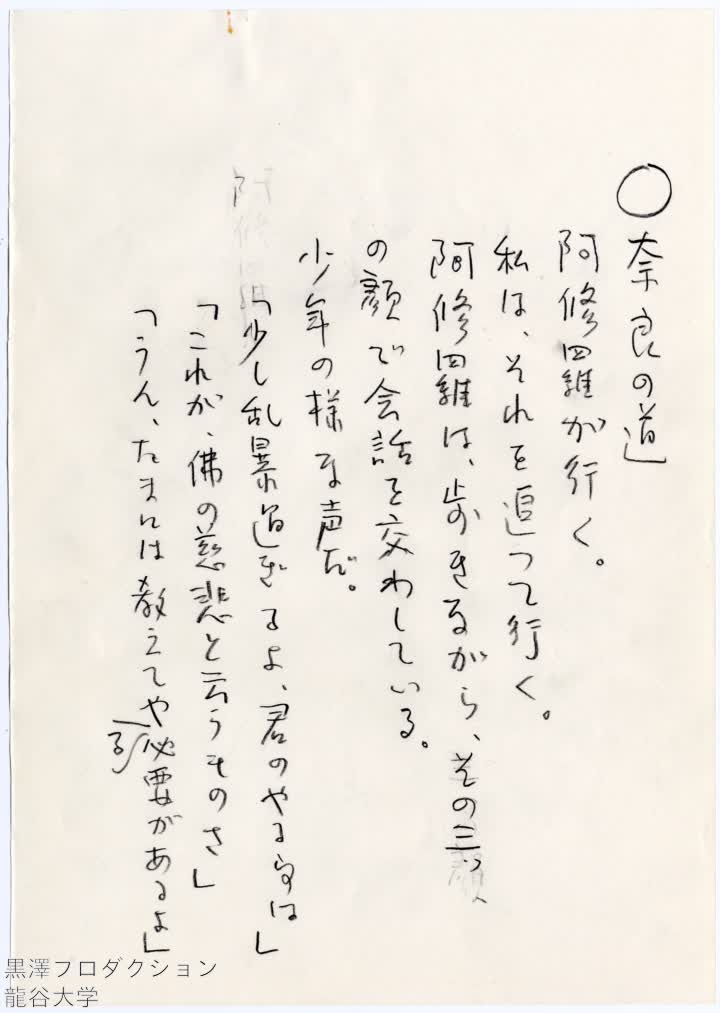 ○奈良の道
阿修羅が行く。
私は、それを追って行く。
阿修羅は、歩きながら、その三つ
の顔で会話を交わしている。
少年の様な声だ。
「少し乱暴過ぎるよ、君のやる事は」
「これが、佛の慈悲と云うものさ」
「うん、たまには教えてやる必要があるよ」
黒澤プロダクション
龍谷大学